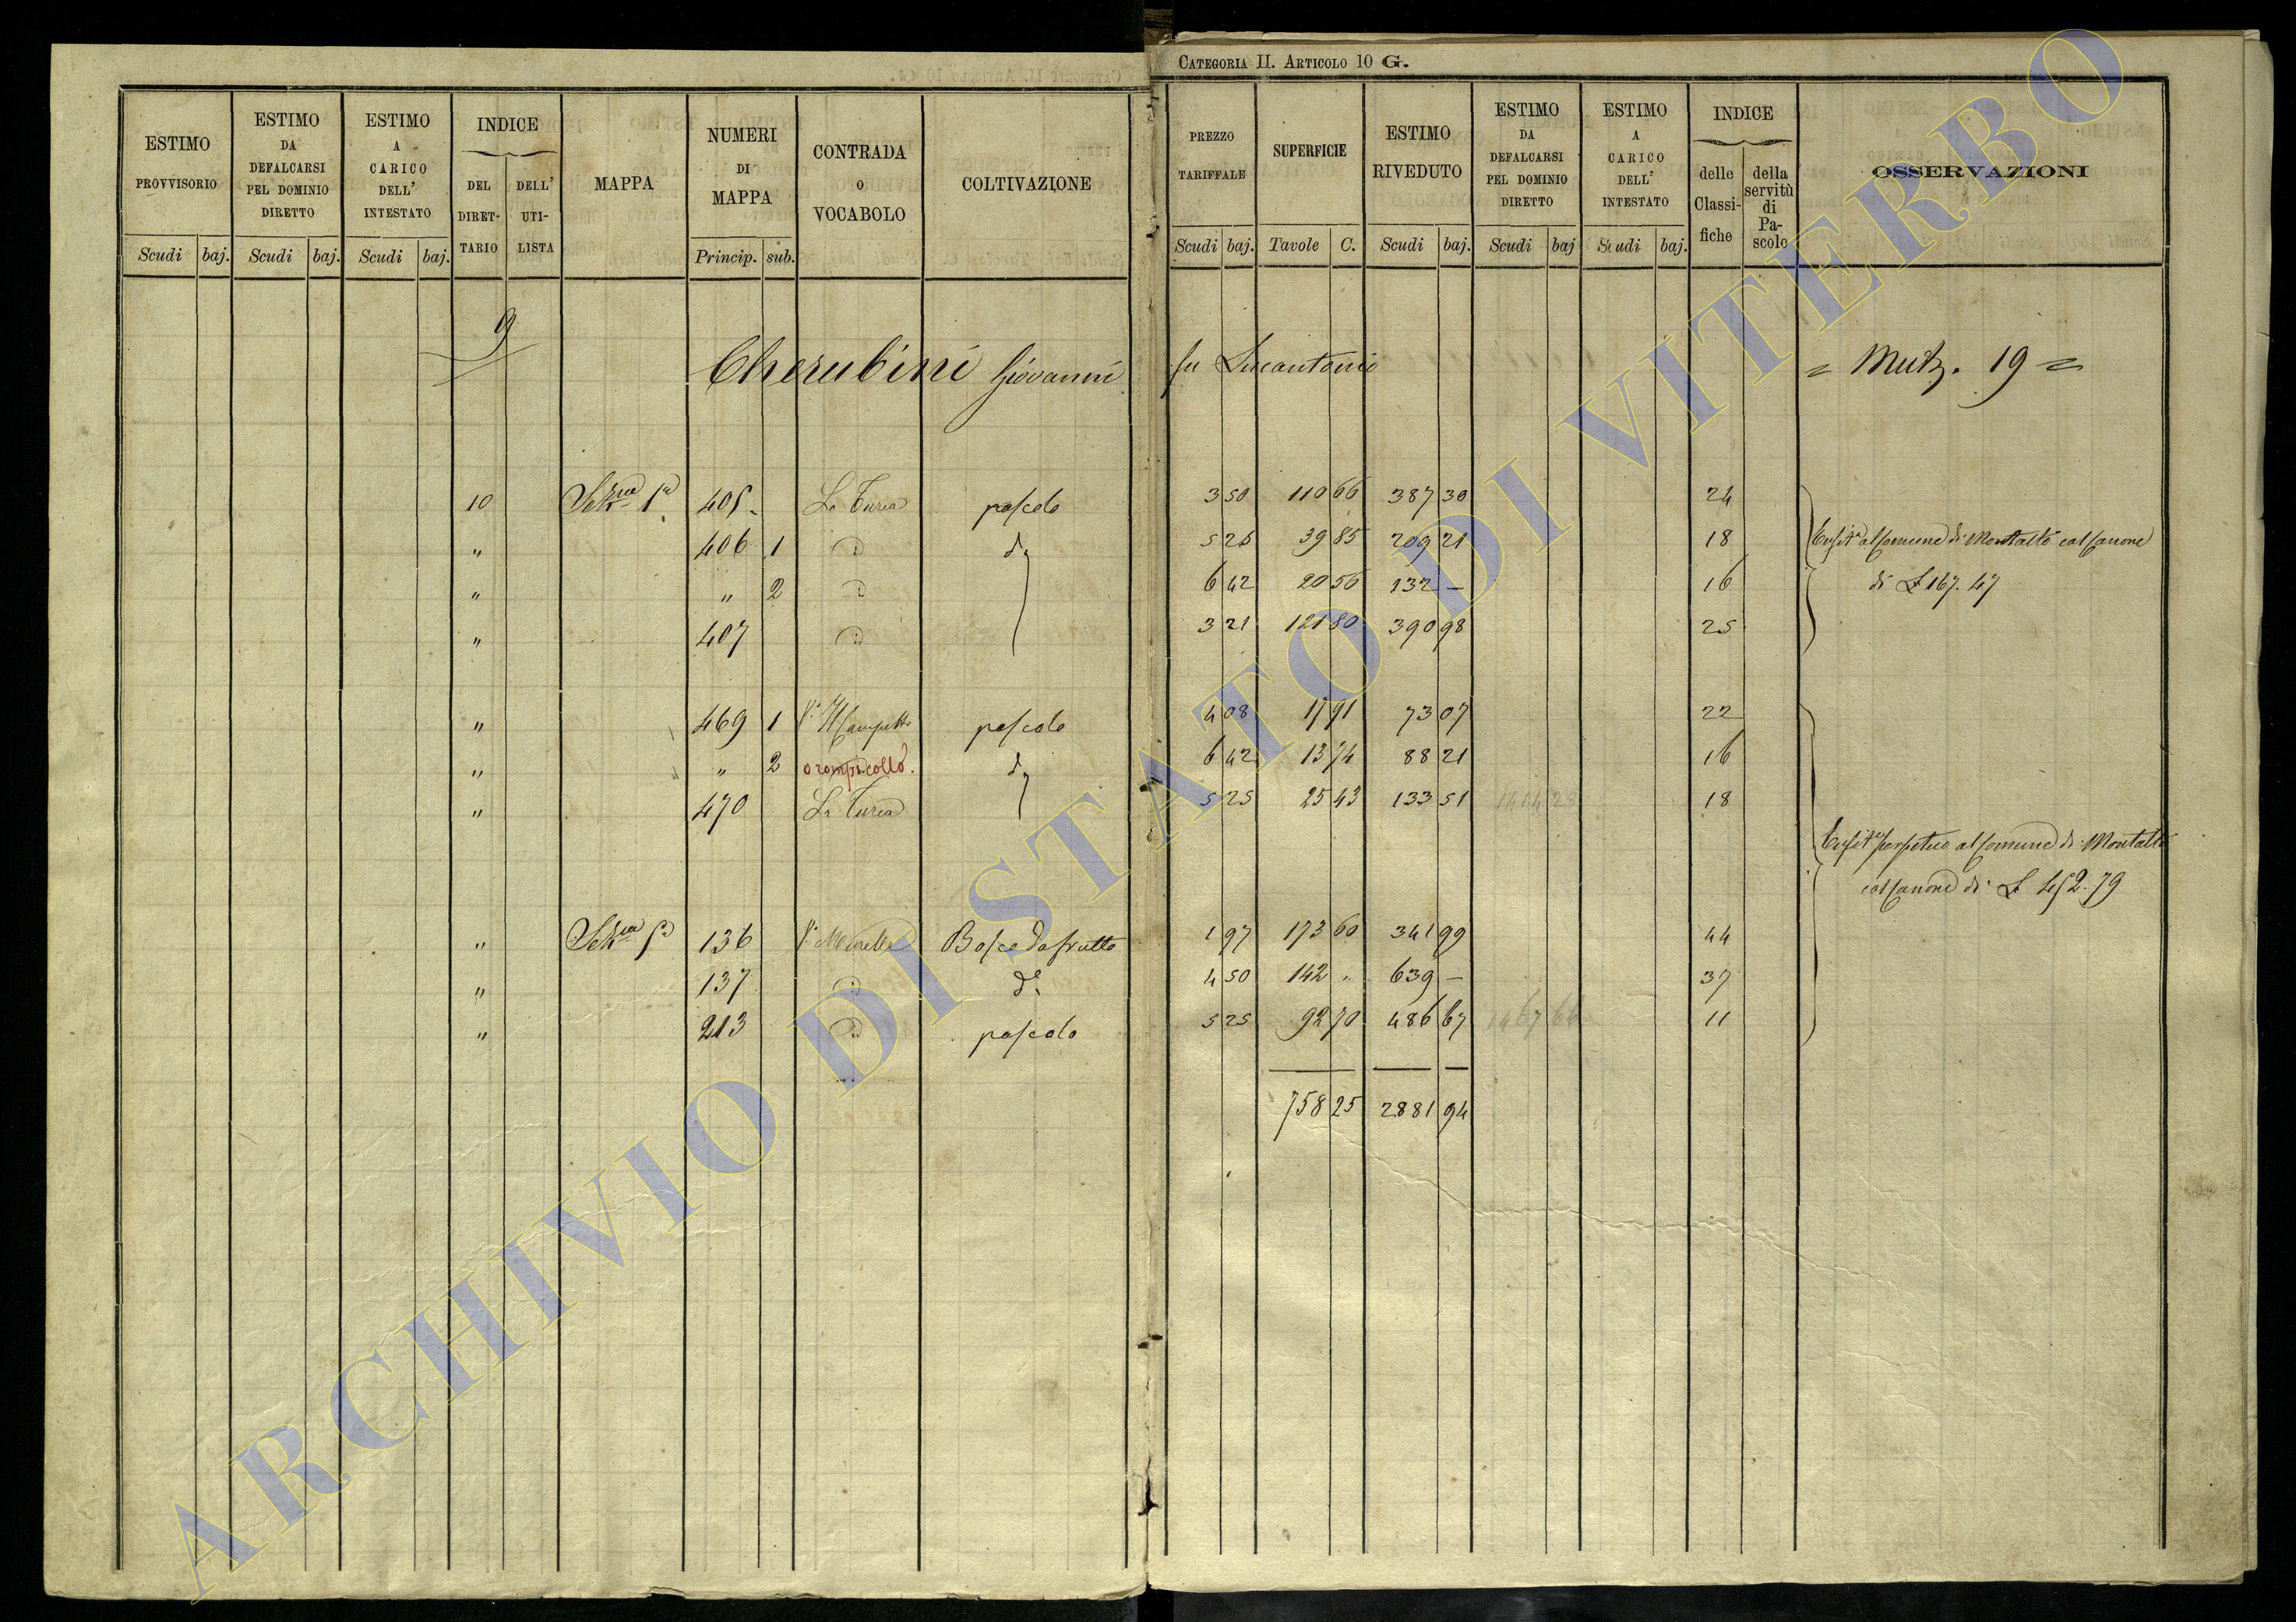 CATEGORIA II. ARTICOLO 10 G.
ESTIMO PROVVISORIO Scudi baj.
ESTIMO DA DEFALCARSI PEL DOMINIO DIRETTO Scudi baj.
ESTIMO A CARICO DELL' INTESTATO Scudi baj.
INDICE DEL DIRET-TARIO DELL' UTI-LISTA
MAPPA
NUMERI DI MAPPA Princip. sub.
CONTRADA O VOCABOLO
COLTIVAZIONE
PREZZO TARIFFALE Scudi baj.
SUPERFICIE Tavole C.
ESTIMO RIVEDUTO Scudi baj.
ESTIMO DA DEFALCARSI PEL DOMINIO DIRETTO Scudi baj
ESTIMO A CARICO DELL' INTESTATO Scudi baj.
INDICE delle Classi-fiche della servitù di Pa-scolo
OSSERVAZIONI
9
Cherubini Giovanni fu Lucantonio = Mutz. 19 =
10 Sezne 1a 405 La Turca pascolo 3 50 110 66 387 30 24
" 406 1 d° 5 25 39 85 209 21 18 al Comune di Montalto col Canone
" " 2 6 42 20 56 132 — 16 di £ 167. 47
" 407 3 21 121 80 390 98 25
" 469 1 Il Campetto pascolo 4 08 17 91 73 07 22
" " 2 o rompicollo. d° 6 42 13 74 88 21 16
" 470 La Turca 5 25 25 43 133 51 1414 28 18
perpetuo al Comune di Montalto
col Canone di £ 452. 79
" Sezne 5a 136 Bosco da frutto 1 97 173 60 341 99 44
" 137 d° 4 50 142 " 639 — 37
" 213 pascolo 5 25 92 70 486 67 1467 66 11
758 25 2881 94
ARCHIVIO DI STATO DI VITERBO